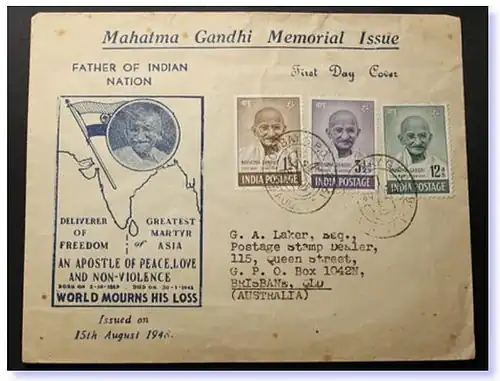 Mahatma Gandhi Memorial Issue
FATHER OF INDIAN
NATION
First Day Cover
DELIVERER
OF
FREEDOM
of
GREATEST
MARTYR
ASIA
AN APOSTLE OF PEACE, LOVE
AND NON-VIOLENCE
BORN ON 2-10-1869 DIED ON 30-1-1948
WORLD MOURNS HIS LOSS
Issued on
15th August 1948.
बापू
MAHATMA GANDHI
INDIA POSTAGE
बापू
3½
AS
MAHATMA GANDHI
INDIA POSTAGE
बापू
12
AS
INDIA POSTAGE
G. A. Laker, Esq.,
Postage Stamp Dealer,
115, Queen Street,
G. P. O. Box 1042N,
BRISBANE, QLD
(AUSTRALIA)